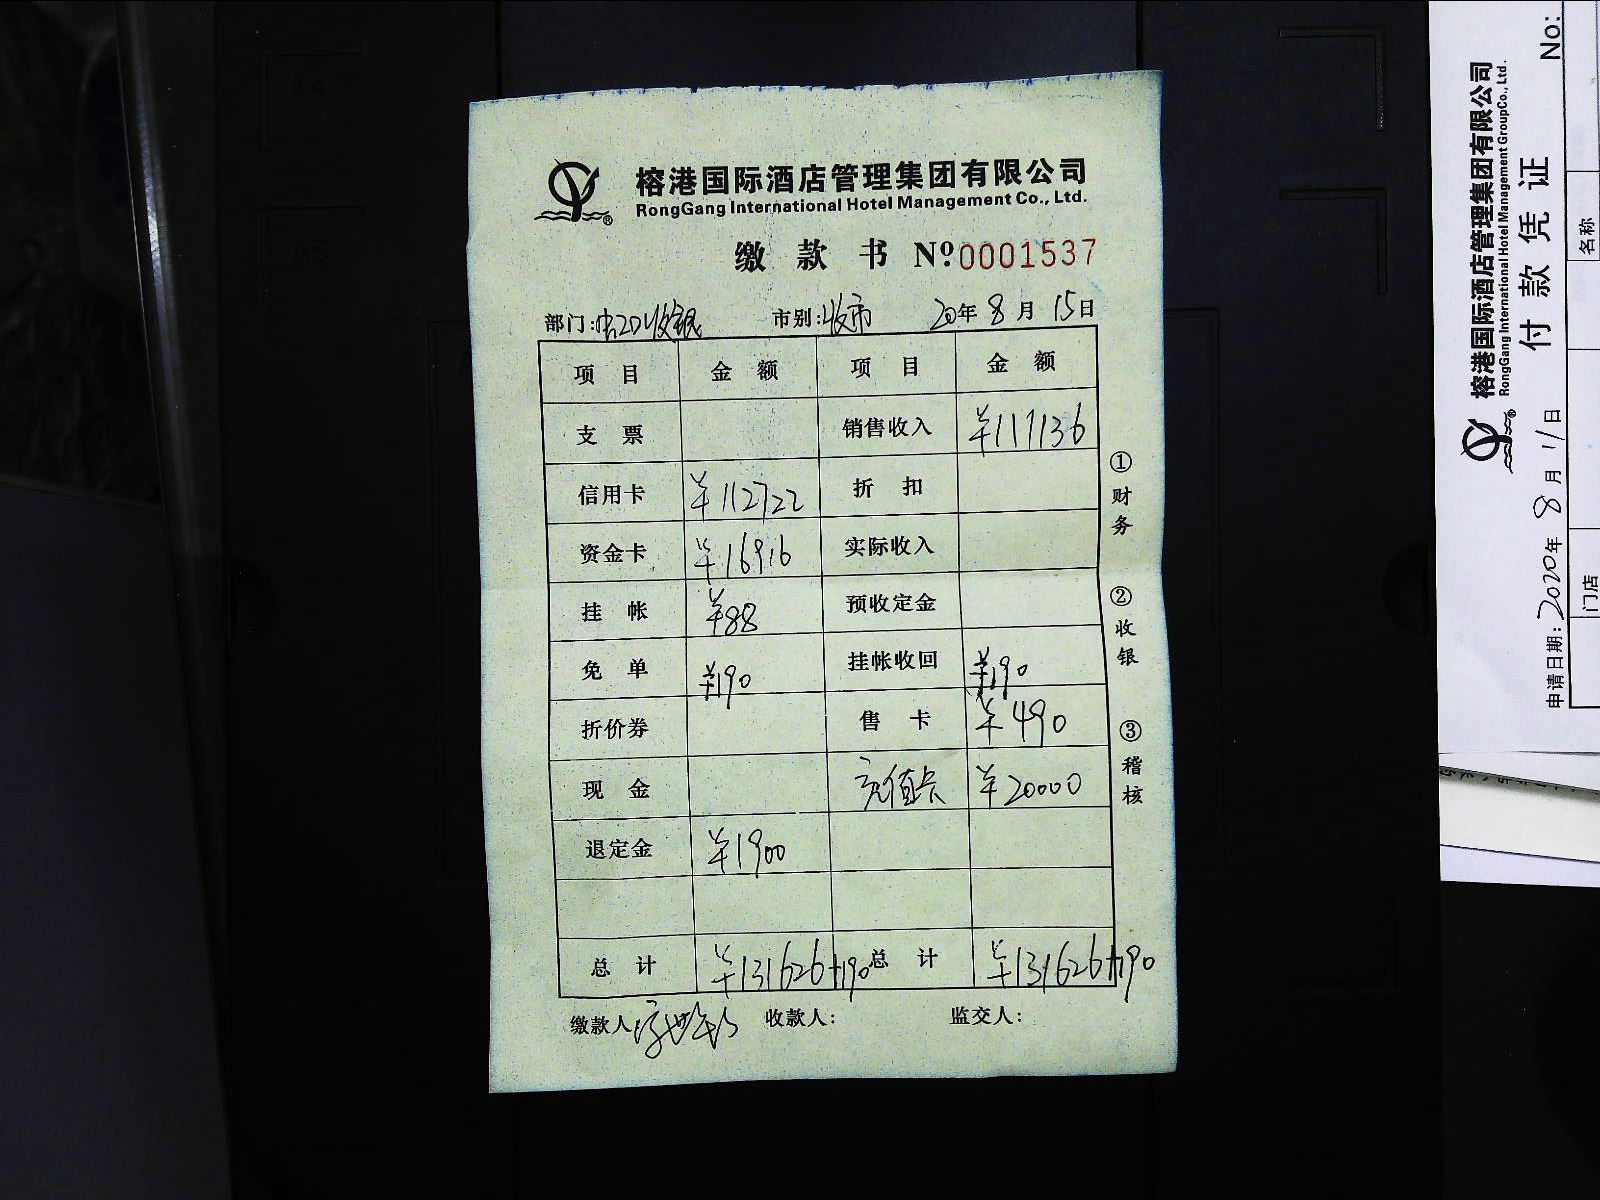 榕港国际酒店管理集团有限公司
RongGang International Hotel Management Co., Ltd.
缴款书 Nº0001537
部门: 收银 市别:收市 20年8月15日
项目 金额 项目 金额
支票 销售收入 ¥111136
信用卡 ¥112722 折扣
资金卡 ¥16916 实际收入
挂帐 ¥88 预收定金
免单 ¥190 挂帐收回 ¥190
折价券 售卡 ¥490
现金 充值卡 ¥20000
退定金 ¥1900
总计 ¥131626+190 总计 ¥131626+190
缴款人 收款人: 监交人:
①财务
②收银
③稽核
榕港国际酒店管理集团有限公司
RongGang International Hotel Management GroupCo., Ltd.
付款凭证
No:
申请日期:2020年8月11日
门店 名称